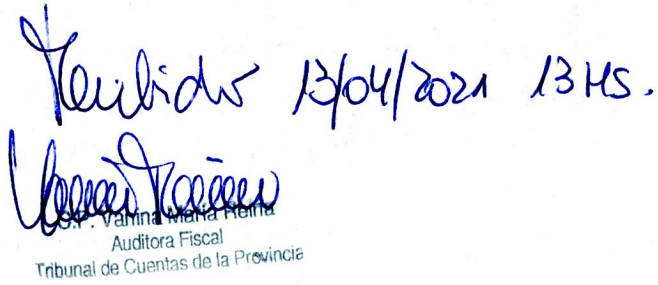 Recibido 13/04/2021 13 HS.
C.P. Vanina María Reina
Auditora Fiscal
Tribunal de Cuentas de la Provincia